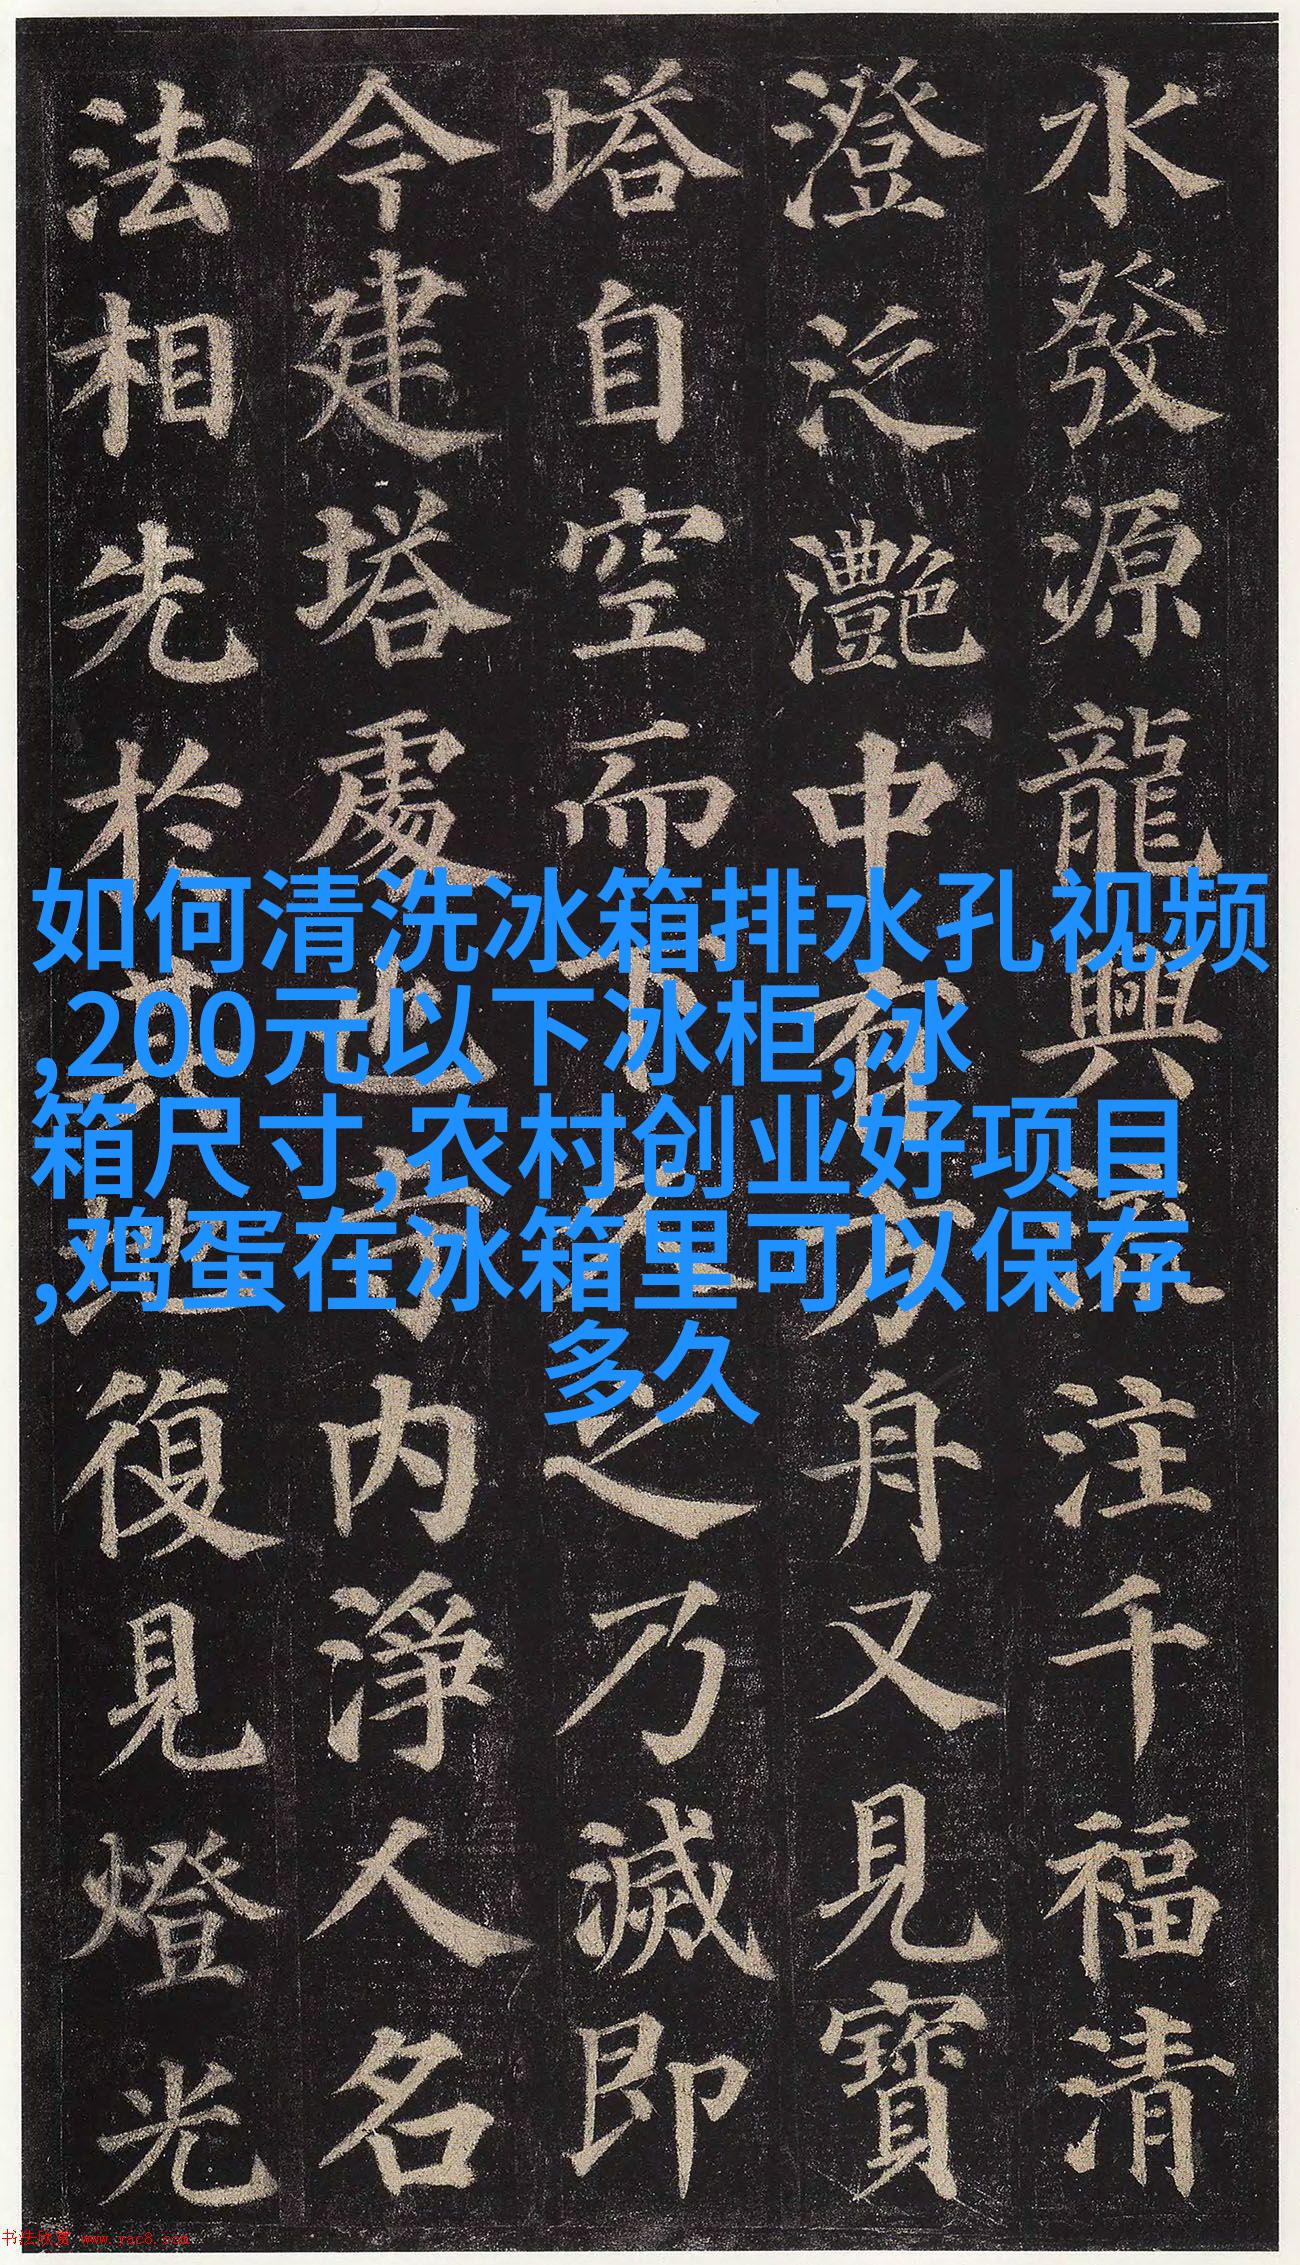 水發源龍興流注千福清
澄泛灩中有方舟又見寶
塔自空而下久之乃滅即
今建塔處也寺内淨人名
法相先於其地復見燈光
如何清洗冰箱排水孔视频
,200元以下冰柜,冰
箱尺寸,农村创业好项目
,鸡蛋在冰箱里可以保存
多久
书法欣赏 www.yac8.com